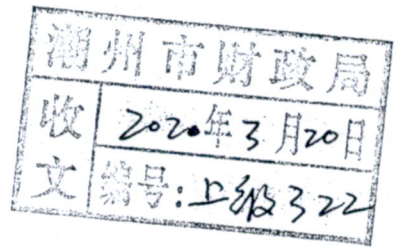 潮州市财政局
收文
2020年3月20日
编号:上级322